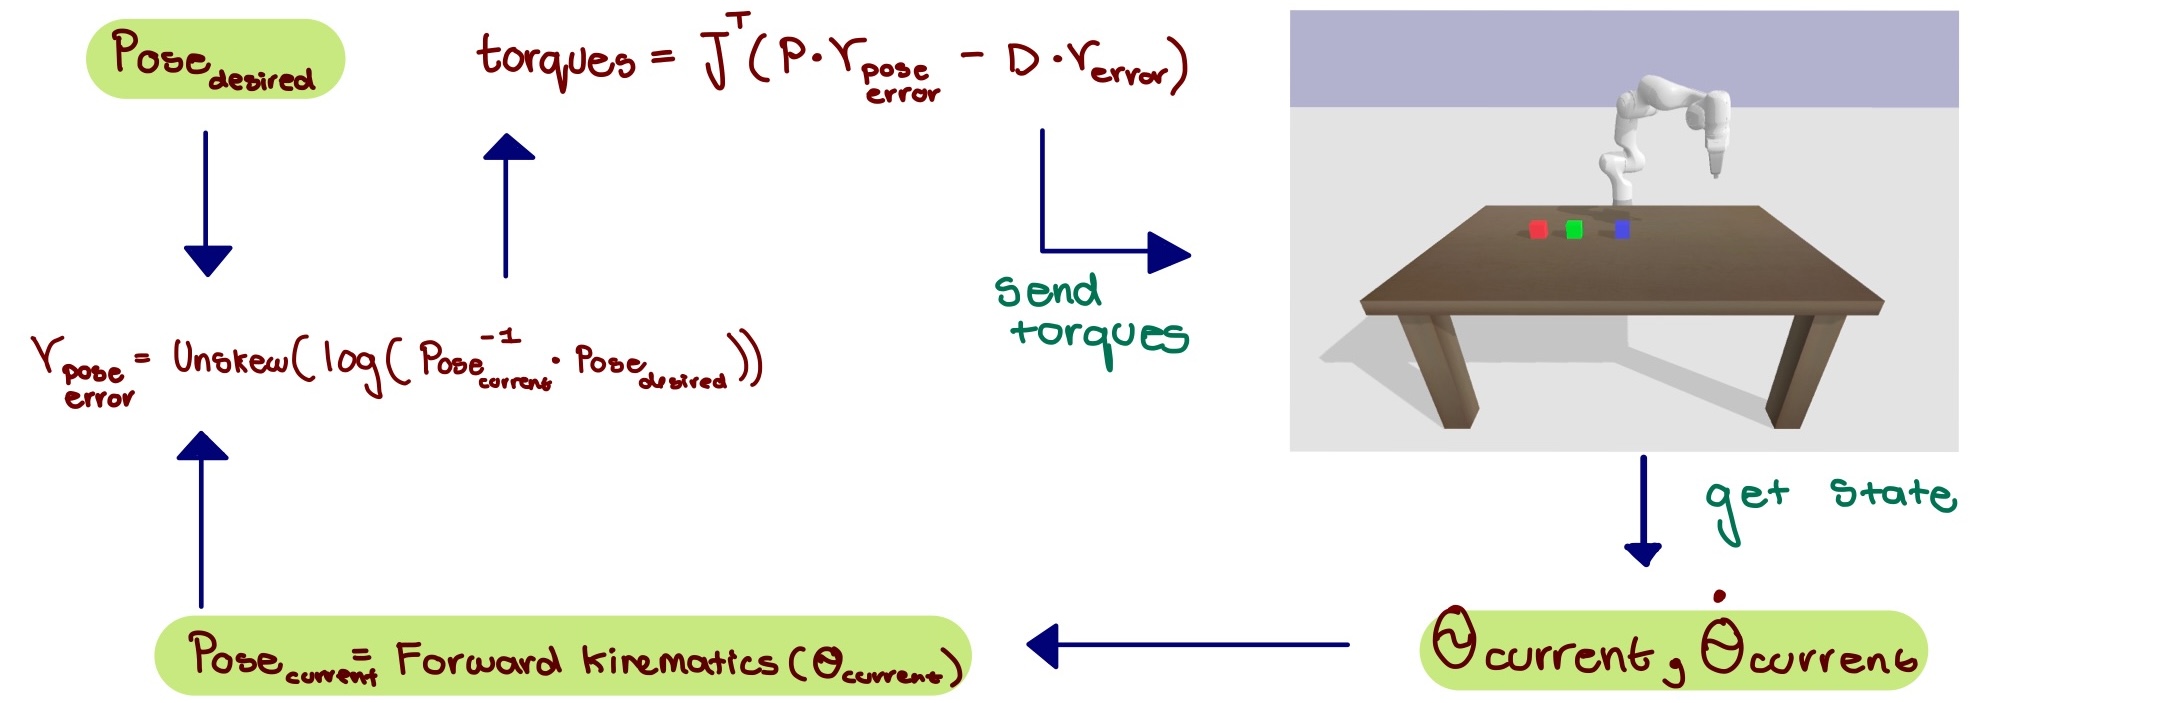 Pose desired
torques = J^T (P · r pose error − D · r error)
send
torques
r pose error = Unskew(log(Pose current^-1 · Pose desired))
get state
Pose current = Forward kinematics(θ current)
θ current, θ̇ current